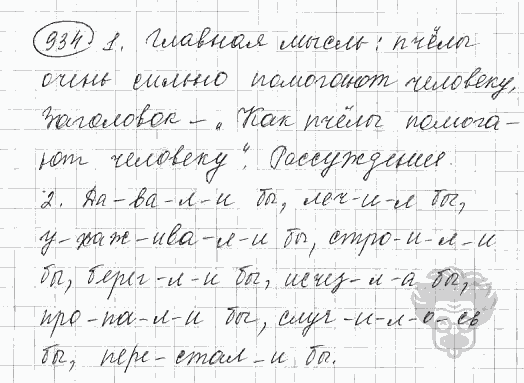 934. 1. Главная мысль: пчёлы
очень сильно помогают человеку.
Заголовок – „Как пчёлы помога-
ют человеку". Рассуждение.
2. Да-ва-л-и бы, леч-и-л бы,
у-хаж-ива-л-и бы, стро-и-л-и
бы, берег-л-и бы, исчез-л-а бы,
про-па-л-и бы, случ-и-л-о-сь
бы, пере-стал-и бы.